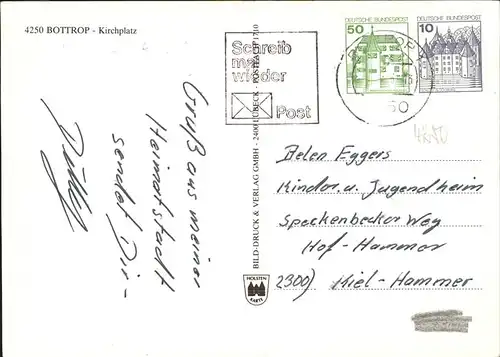 4250 BOTTROP - Kirchplatz
Gruß aus meiner
Heimatstadt
sendet Dir -
BILD-DRUCK & VERLAG GMBH - 2400 LÜBECK - POSTFACH 1710
HOLSTEN
KARTE
Schreib
mal
wieder
Post
50 DEUTSCHE BUNDESPOST
DEUTSCHE BUNDESPOST
10
4250
Belen Eggers
Kinder u. Jugendheim
Speckenbecker Weg
Hof-Hammer
2300) Kiel-Hammer